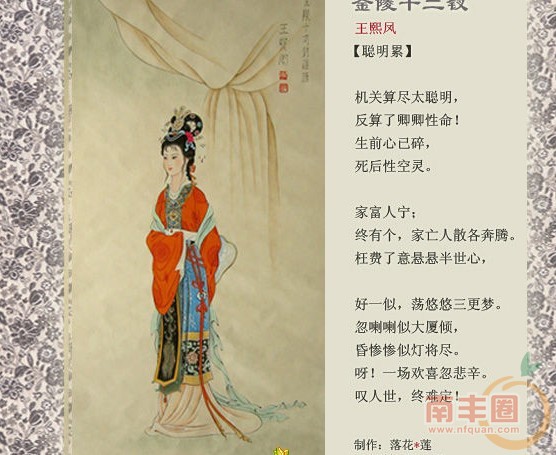 金陵十三钗
王熙凤
【聪明累】
机关算尽太聪明，
反算了卿卿性命！
生前心已碎，
死后性空灵。
家富人宁；
终有个，家亡人散各奔腾。
枉费了意悬悬半世心，
好一似，荡悠悠三更梦。
忽喇喇似大厦倾，
昏惨惨似灯将尽。
呀！一场欢喜忽悲辛。
叹人世，终难定！
南丰圈
www.nfquan.com
制作：落花*莲